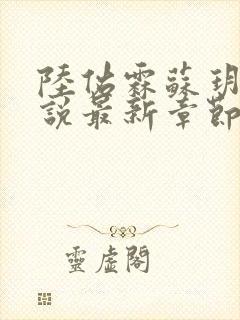 陸佔霖蘇玥
說最新章節
靈虛閣